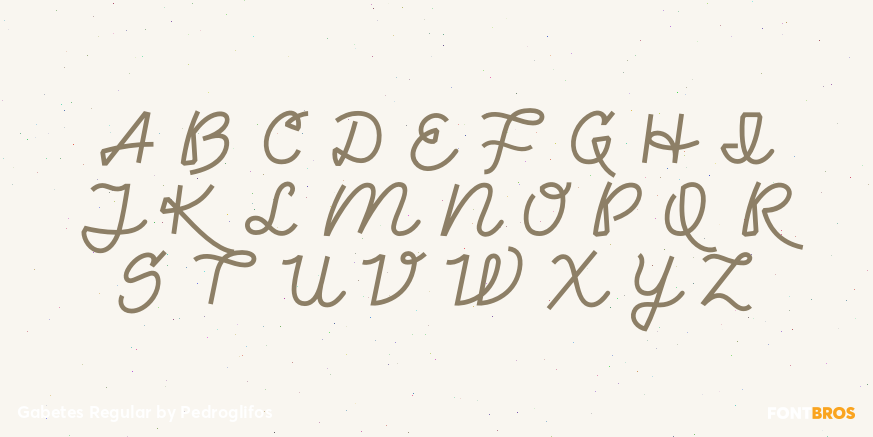 A B C D E F G H I
J K L M N O P Q R
S T U V W X Y Z
Gabetes Regular by Pedroglifos
FONTBROS